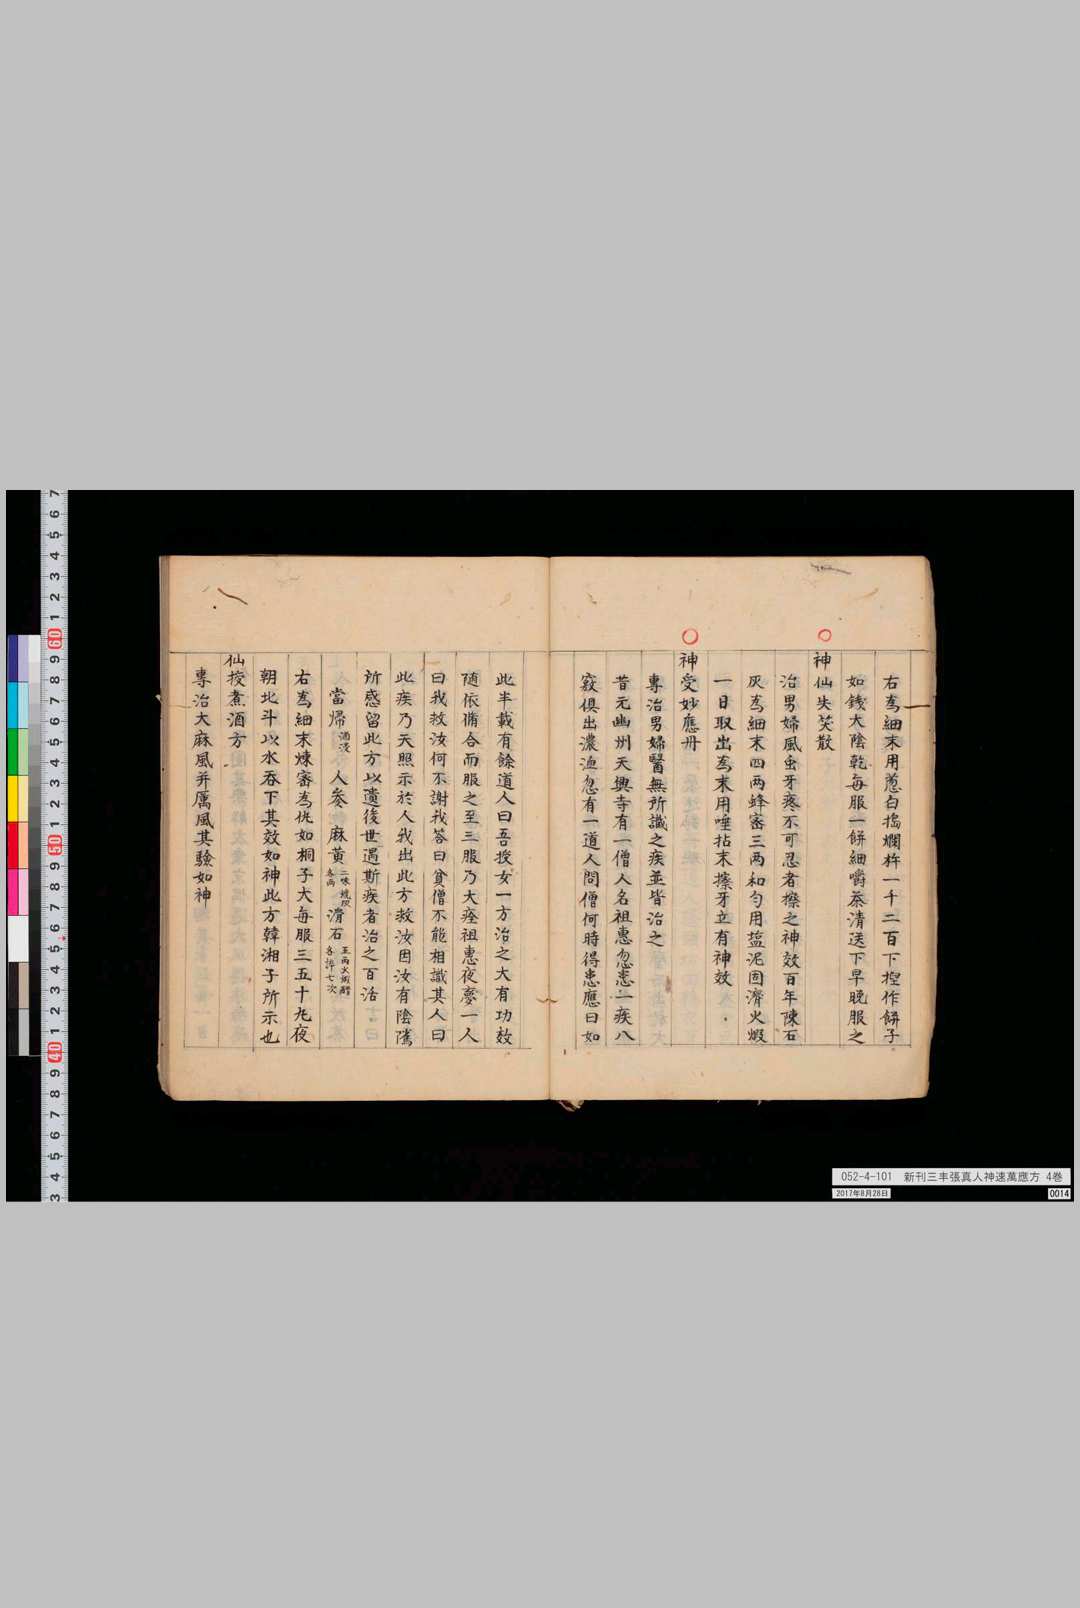 右為細末用葱白搗爛杵一千二百下揑作餅子
如錢大陰乾每服一餅細嚼茶清送下早晚服之
神仙失笑散
治男婦風虫牙疼不可忍者擦之神效百年陳石
灰為細末四两蜂蜜三两和勻用塩泥固濟火煅
一日取出為末用唾拈末擦牙立有神效
神受妙應丹
專治男婦醫無所識之疾並皆治之
昔元幽州天興寺有一僧人名祖惠忽患一疾八
竅俱出濃血忽有一道人問僧何時得患應曰如
此半載有餘道人曰吾授女一方治之大有功效
随依脩合而服之至三服乃大痊祖惠夜夢一人
曰我救汝何不謝我答曰貧僧不能相識其人曰
此疾乃天照示於人我出此方救汝因汝有陰隲
所感留此方以遺後世遇斯疾者治之百活
當歸酒浸人參麻黃二味各两滑石
右為細末煉蜜為丸如桐子大每服三五十丸夜
朝北斗以水吞下其效如神此方韓湘子所示也
仙授煮酒方
專治大麻風并厲風其驗如神
052-4-101 新刊三丰張真人神速萬應方 4巻
2017年8月28日
0014